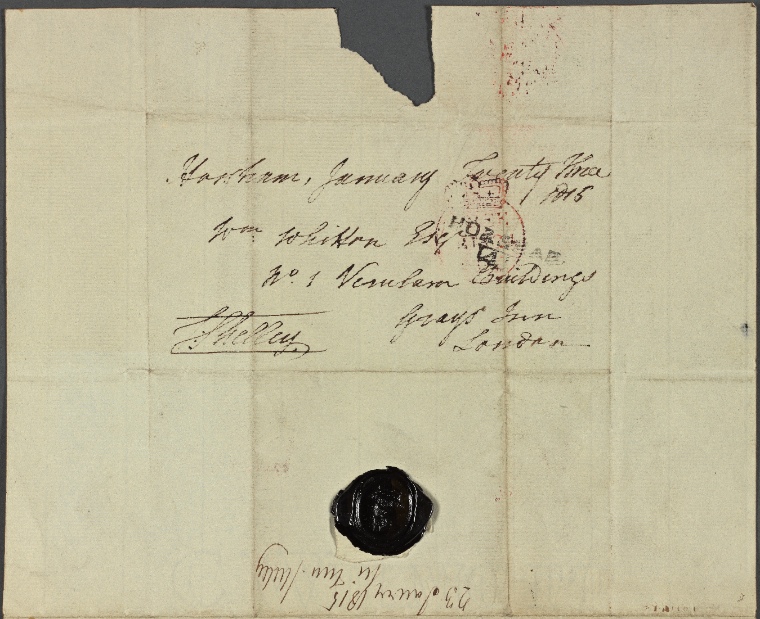 Horsham, January Twenty Three
1815
Wm Whitton Esq
HORSHAM
No. 1 Verulam Buildings
Grays Inn
London
Shelley
23 Jany 1815
Sir Tim Shelley